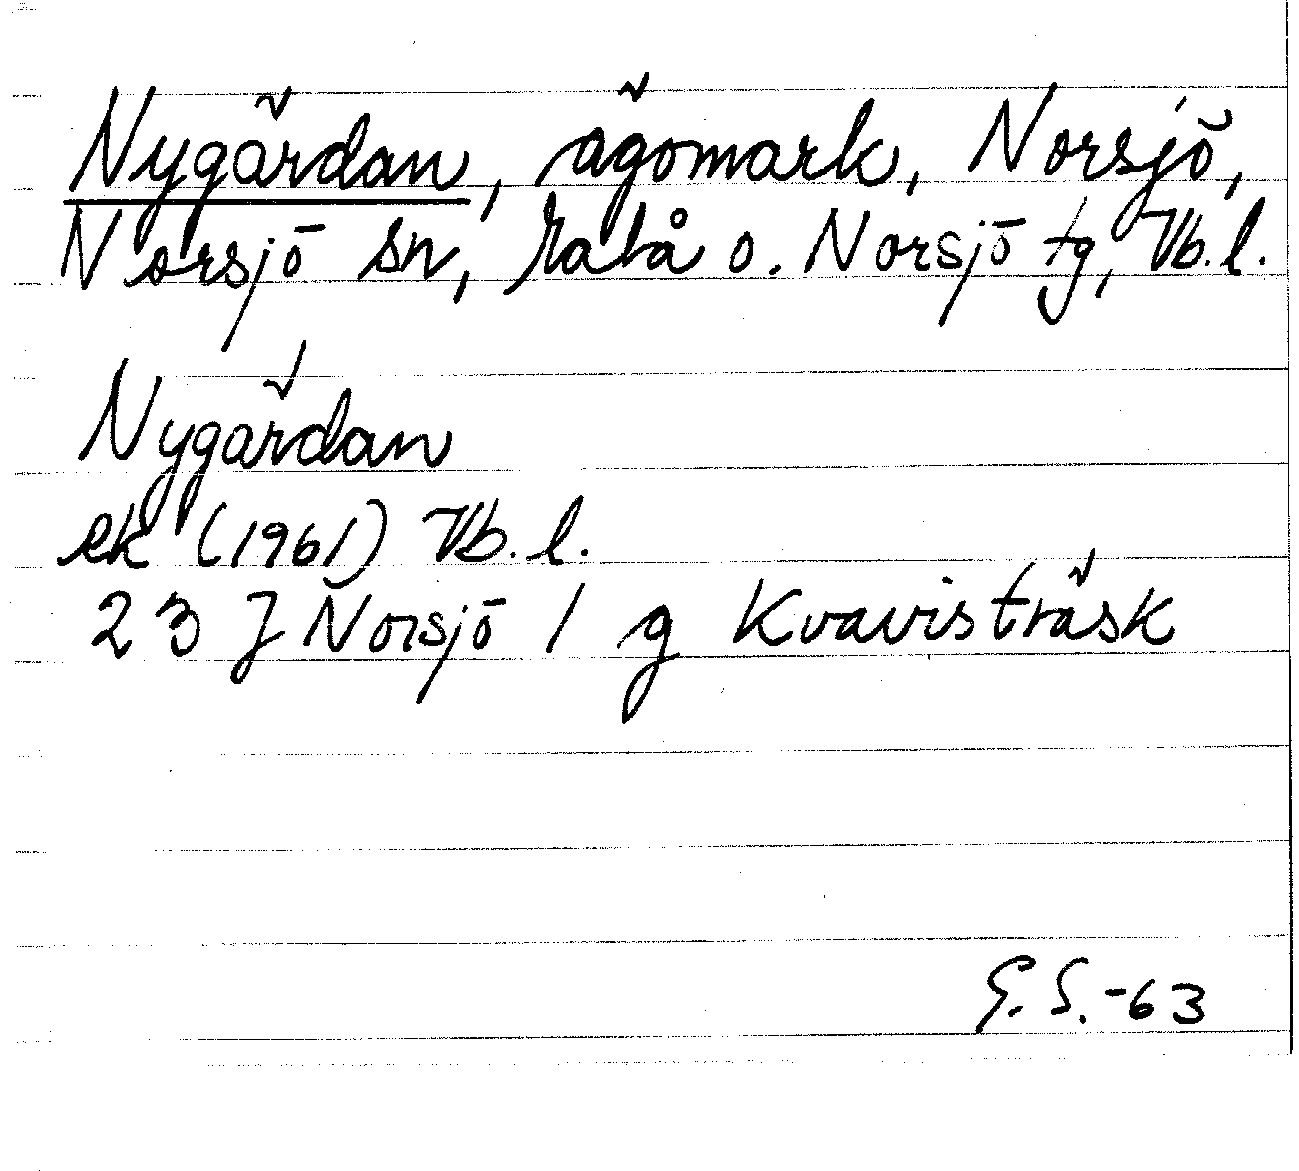 Nygärdan, ägomark, Norsjö,
Norsjö sn, Malå o. Norsjö tg, Vb. l.
Nygärdan
ek (1961) Vb. l.
23 J Norsjö 1 g Kvavisträsk
G. S. -63